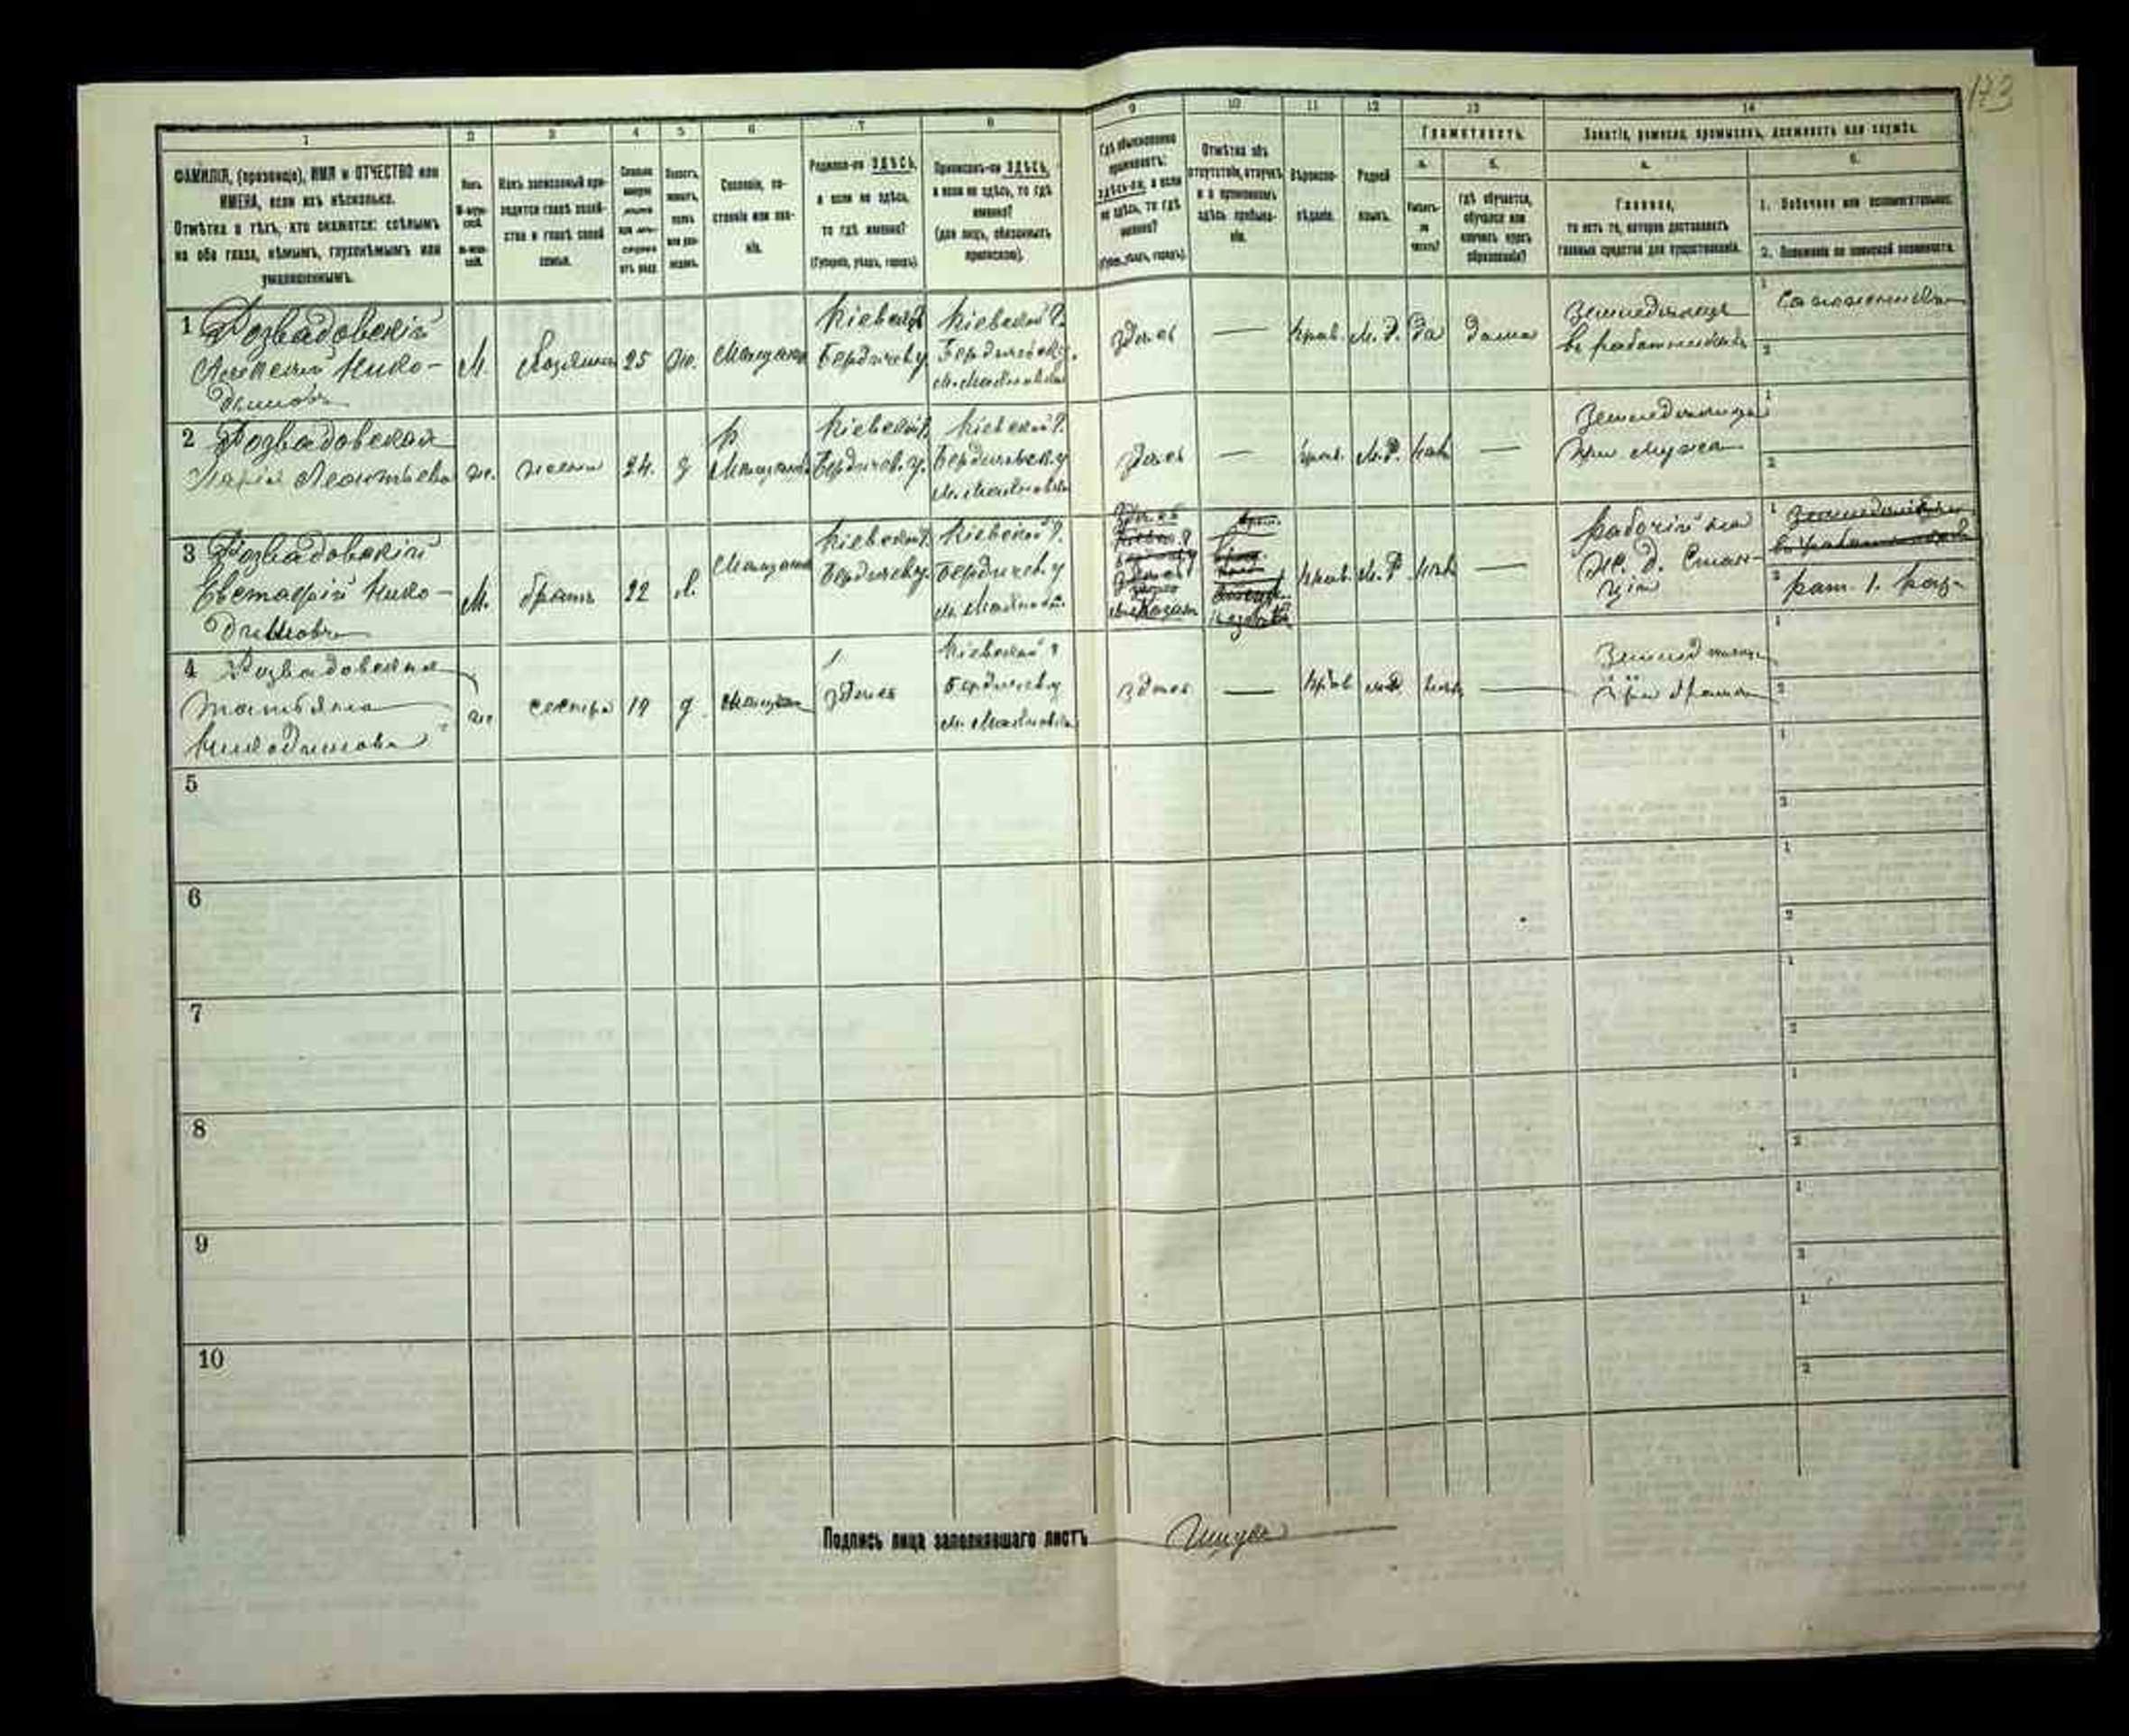 173
1 2 3 4 5 6 7 8 9 10 11 12 13 14
ФАМИЛІЯ, (прозвище), ИМЯ и ОТЧЕСТВО или
ИМЕНА, если ихъ нѣсколько.
Отмѣтка о тѣхъ, кто окажется: слѣпымъ
на оба глаза, нѣмымъ, глухонѣмымъ или
умалишеннымъ.
Полъ.
Какъ записанный при-
ходится главѣ хозяй-
ства и главѣ своей
семьи.
Сословіе, со-
стояніе или зва-
ніе.
Родился-ли ЗДѢСЬ,
а если не здѣсь,
то гдѣ именно?
(Губернія, уѣздъ, городъ).
Приписанъ-ли ЗДѢСЬ,
а если не здѣсь, то гдѣ
именно?
(для лицъ, обязанныхъ
припискою).
Гдѣ обыкновенно
проживаетъ:
здѣсь-ли, а если
не здѣсь, то гдѣ
именно?
(Губ., уѣздъ, городъ).
Отмѣтка объ
отсутствіи, отлучкѣ
и о временномъ
здѣсь пребыва-
ніи.
Вѣроиспо-
вѣданіе.
Родной
языкъ.
Грамотность.
а. б.
Умѣетъ-
ли
читать?
гдѣ обучается,
обучался или
кончилъ курсъ
образованія?
Занятіе, ремесло, промыселъ, должность или служба.
а. б.
Главное,
то есть то, которое доставляетъ
главныя средства для существованія.
1. Побочное или вспомогательное.
2. Положеніе по воинской повинности.
1 Розвадовскій
Алексѣй Нико-
димовъ
М. Хозяинъ 25 Ж. Мещанин
Кіевской г.
Бердичев у.
Кіевской г.
Бердичевск у.
м. Махновка
Здѣсь — прав. М. Р. Да Дома
Земледѣлец
въ работникахъ
1 Сапожникъ
2
2 Розвадовская
Марія Леонтьева
ж. жена 24. З Мещанка
Кіевской г.
Бердичев. у.
Кіевской г.
Бердичевск. у
м. Махновка
Здѣсь — прав. М. Р. нѣт —
Земледѣлица
При мужѣ
1
2
3 Розвадовскій
Евстафій Нико-
димовъ
М. братъ 22 Х. Мещанин
Кіевской г.
Бердичев у.
Кіевской г.
Бердичев. у
м. Махновка
Здѣсь
прав. М. Р нѣт —
Рабочій на
Ж. д. Стан-
ціи
1 Земледѣлец
въ работникахъ
2 рат. 1. раз-
4 Розвадовская
Татьяна
Никодимова
ж. сестра 19 д. мещанка
здѣсь
Кіевской г
Бердичев у
м. Махновка
здѣсь — прав М Р нѣт —
Земледѣлица
При братѣ
1
2
5
1
2
6
1
2
7
1
2
8
1
2
9
1
2
10
1
2
Подпись лица заполнявшаго листъ